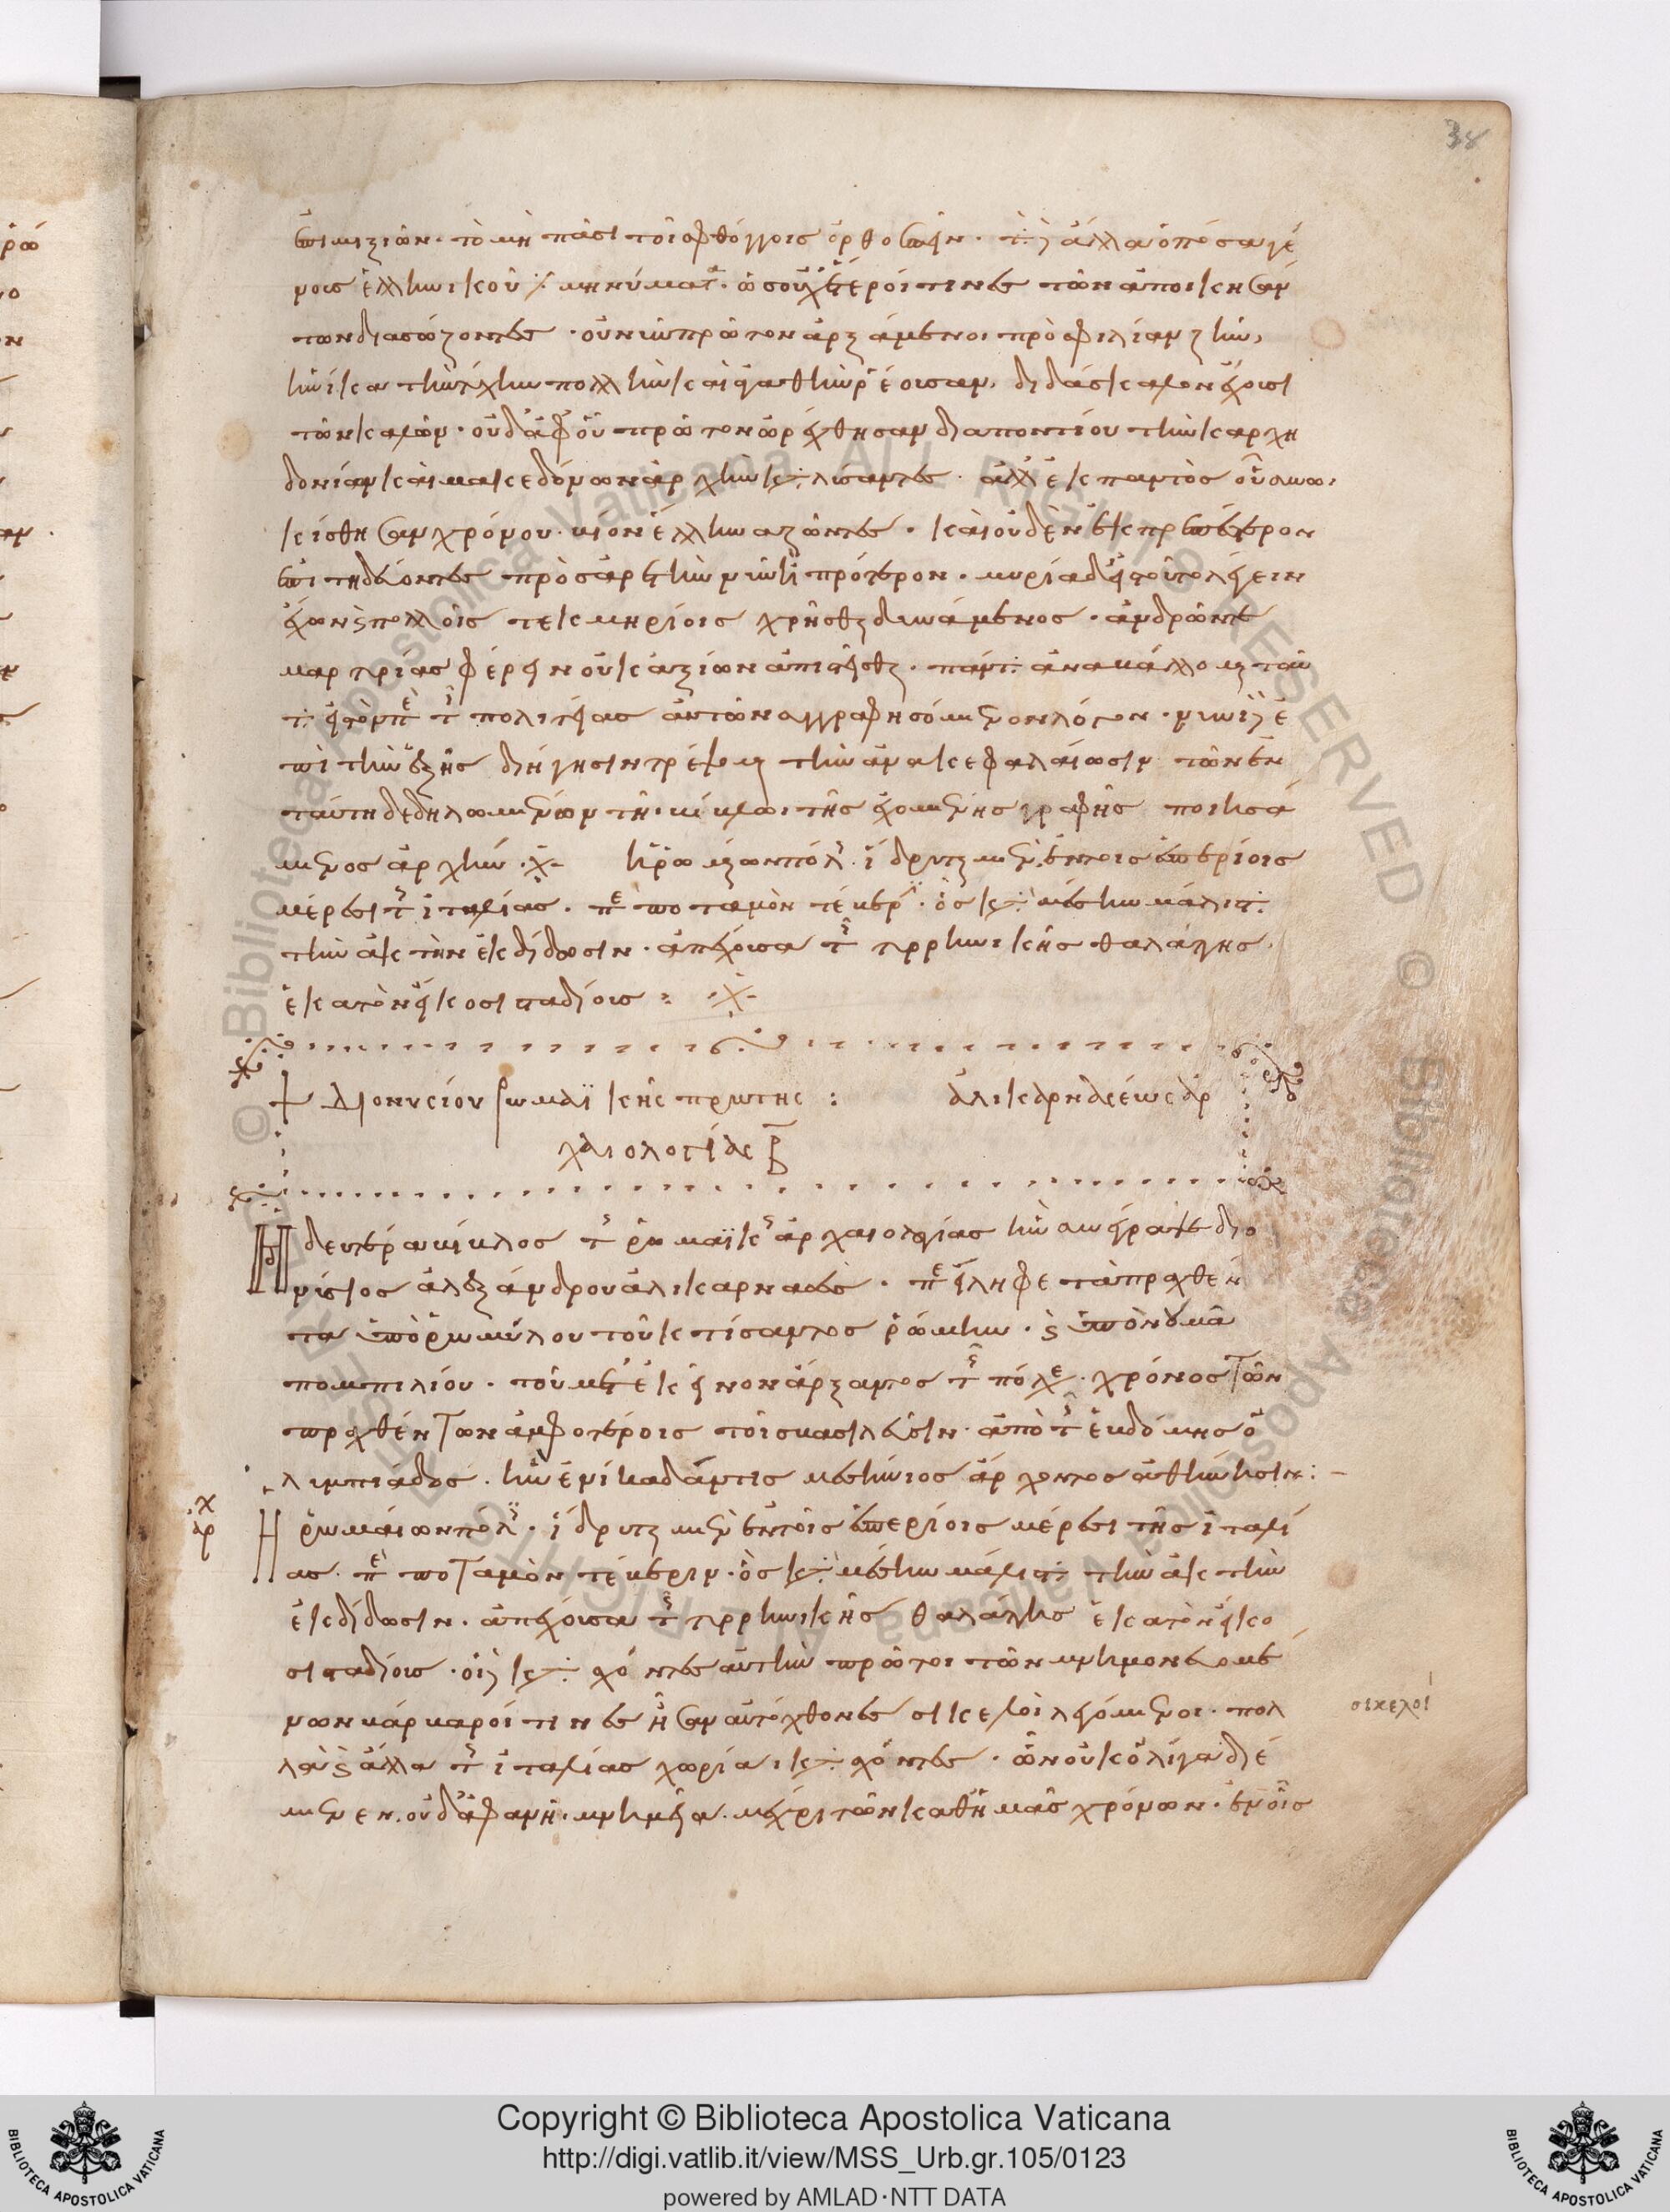 38
ἐπιμιξιῶν· τὸ μὴ πᾶσι τοῖς φθόγγοις ὀρθοεπεῖν· τὰ δὲ ἄλλα ὁπόσα γέ
νους ἑλληνικοῦ μηνύματ ὡς οὐχ ἕτεροί τινες τῶν ἀποικησάν
των διασώζοντες · οὐ νῦν πρῶτον ἀρξάμενοι πρὸς φιλίαν ζῆν,
ἡνίκα τὴν τύχην πολλὴν καὶ ἀγαθὴν ῥέουσαν, διδάσκαλον ἔχουσι
τῶν καλῶν · οὐδ ἀφ οὗ πρῶτον ὠρέχθησαν διαποντίου τὴν καρχη
δονίων καὶ μακεδόνων ἀρχὴν καταλύσαντες · ἀλλ ἐκ παντὸς οὗ συνω
κίσθησαν χρόνου · βίον ἕλληνα ζῶντες · καὶ οὐδὲν ἐκπρεπέστερον
ἐπιτηδεύοντες πρὸς ἀρετὴν νῦν ἢ πρότερον · μυρία δ εἰς τοῦτο λέγειν
ἔχων καὶ πολλοῖς τεκμηρίοις χρῆσθαι δυνάμενος · ἀνδρῶν τε
μαρτυρίας φέρειν οὐκ ἀξίων ἀπιστεῖσθαι · πάντα ἀναβάλλομαι ταῦ
τα εἰς τὸν περὶ τῆς πολιτείας αὐτῶν συγγραφησόμενον λόγον · νυνὶ δὲ ἐ
πὶ τὴν ἑξῆς διήγησιν τρέψομαι τὴν ἀνακεφαλαίωσιν τῶν ἐν
ταύτῃ δεδηλωμένων τῇ βίβλωι τῆς ἐχομένης γραφῆς ποιησά
μενος ἀρχήν ·
ἡ ῥωμαίων πόλ ἵδρυται μὲν ἐν τοῖς ἑσπερίοις
μέρεσι τῆς ἰταλίας · περὶ ποταμὸν τέβεριν · ὃς κατὰ μέσην μάλιστα
τὴν ἀκτὴν ἐκδίδωσιν · ἀπέχουσα τῆς τυρρηνικῆς θαλάττης
ἑκατὸν εἴκοσι σταδίους :
Διονυσίου ῥωμαϊκῆς πρώτης : ἁλικαρνασέως ἀρ
χαιολογίας Β
Η δευτέρα βίβλος τῆς ῥωμαϊκῆς ἀρχαιολογίας ἣν συνέγραψε διο
νύσιος ἀλεξάνδρου ἁλικαρνασεὺς · περιείληφε τὰ πραχθέν
τα ὑπὸ ῥωμύλου τοῦ κτίσαντος ῥώμην · καὶ ὑπὸ νουμᾶ
πομπιλίου · τοῦ μετ ἐκεῖνον ἄρξαντος τῆς πόλεως · χρόνος τῶν
πραχθέντων ἀμφοτέροις τοῖς βασιλεῦσιν · ἀπὸ τῆς ἑβδόμης ὀ
λυμπιάδος · ἣν ἐνίκα δάμις μεσήνιος ἄρχοντος ἀθήνησιν :
χ
αρ
Η ῥωμαίων πόλ · ἵδρυται μὲν ἐν τοῖς ἑσπερίοις μέρεσι τῆς ἰταλί
ας · περὶ ποταμὸν τέβεριν · ὃς κατὰ μέσην μάλιστα τὴν ἀκτὴν
ἐκδίδωσιν · ἀπέχουσα τῆς τυρρηνικῆς θαλάττης ἑκατὸν εἴκο
σι σταδίους · οἱ δὲ κατασχόντες αὐτὴν πρῶτοι τῶν μνημονευομέ
νων βάρβαροί τινες ἦσαν αὐτόχθονες σικελοὶ λεγόμενοι · πολ
σικελοί
λὰ καὶ ἄλλα τῆς ἰταλίας χωρία κατασχόντες · ὧν οὐκ ὀλίγα διέ
μενεν · οὐδ ἀφανῆ μνημεῖα · μέχρι τῶν καθ ἡμᾶς χρόνων · ἐν οἷς
© Biblioteca Apostolica Vaticana ALL RIGHTS RESERVED
Copyright © Biblioteca Apostolica Vaticana
http://digi.vatlib.it/view/MSS_Urb.gr.105/0123
powered by AMLAD·NTT DATA
BIBLIOTECA APOSTOLICA VATICANA
BIBLIOTECA APOSTOLICA VATICANA